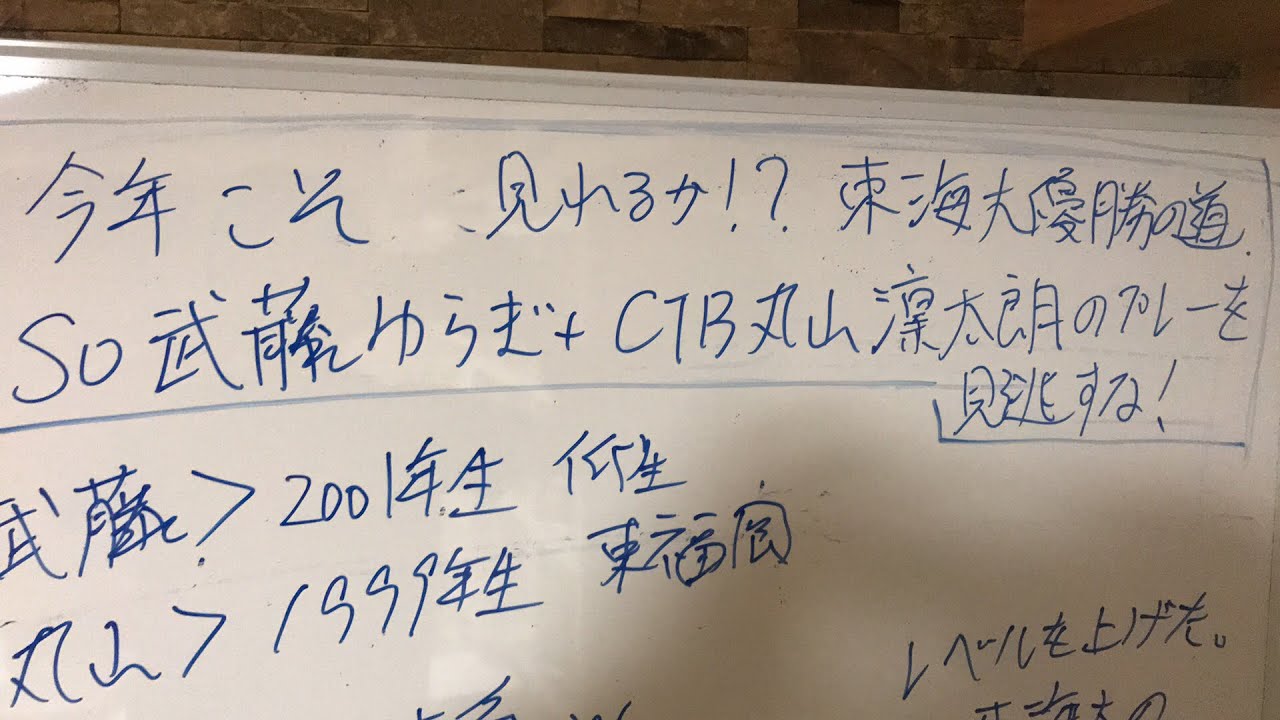 今年こそ 見れるか!? 東海大優勝の道
SO武藤ゆらぎ+CTB丸山凛太朗のプレーを
見逃すな!
武藤> 2001年生 仰星
丸山> 1999年生 東福岡
レベルを上げた。
東海大の